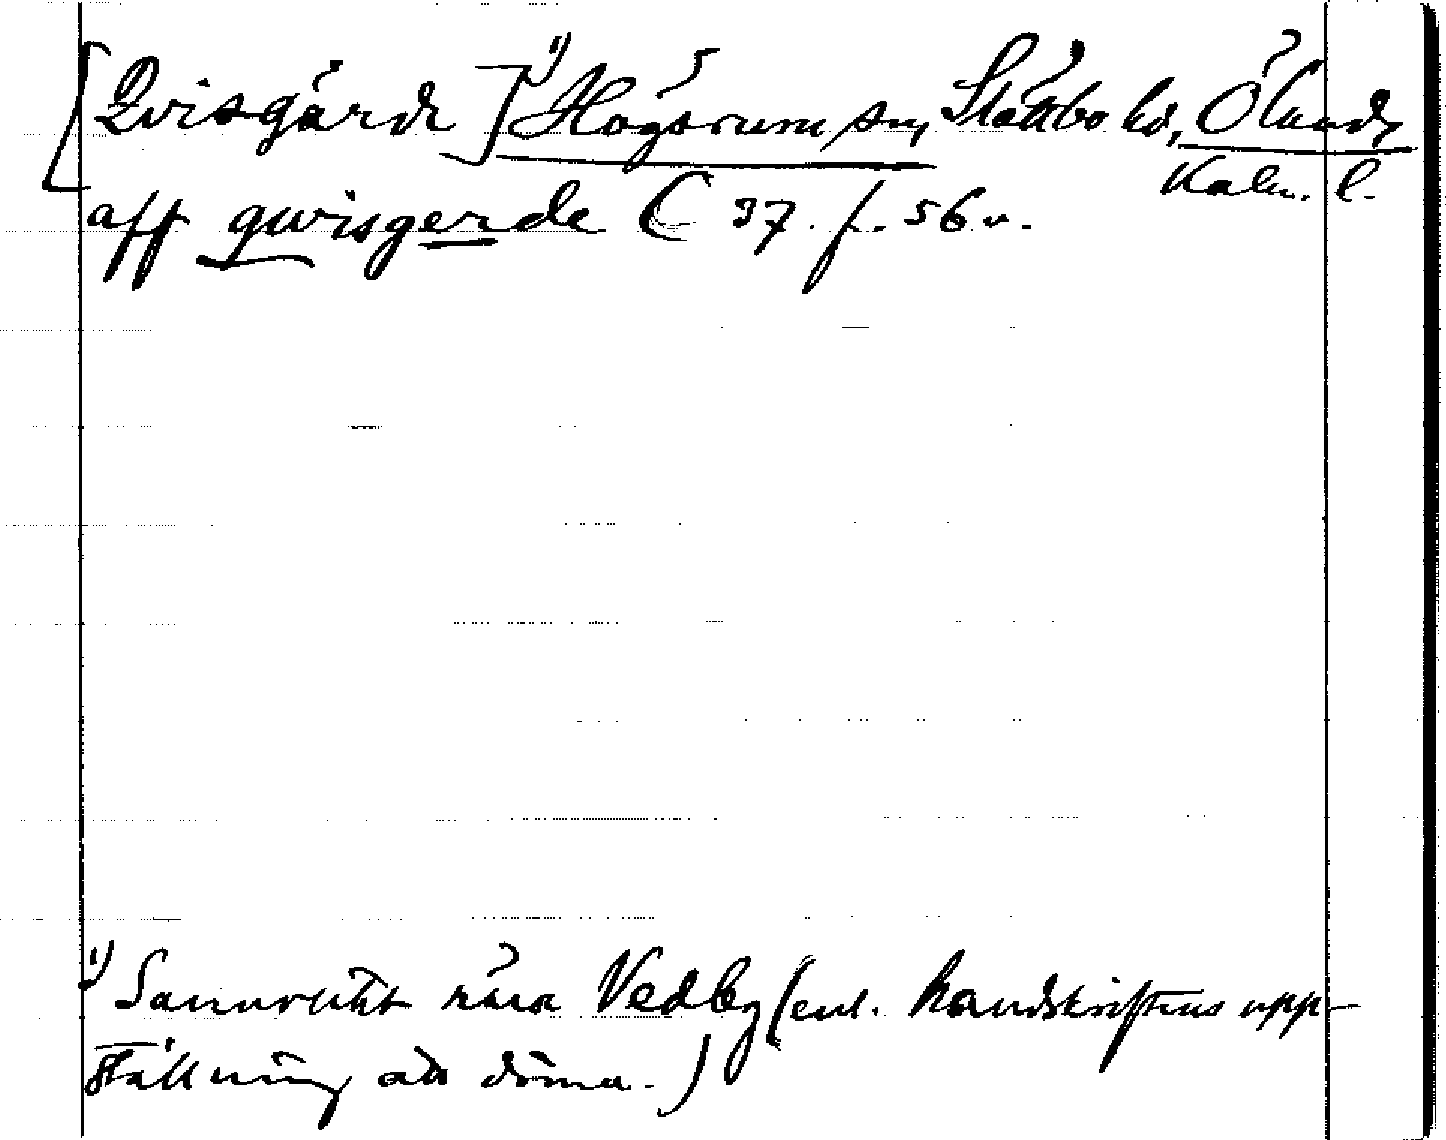 [Qvisgärde] 1) Högsrum sn, Slättbo hd, Ölands
Kalm. l.
aff qwisgerde C 37 f. 56 v.
1) Sannolikt nära Vedby (enl. handskriftens upp-
ställning att döma.)